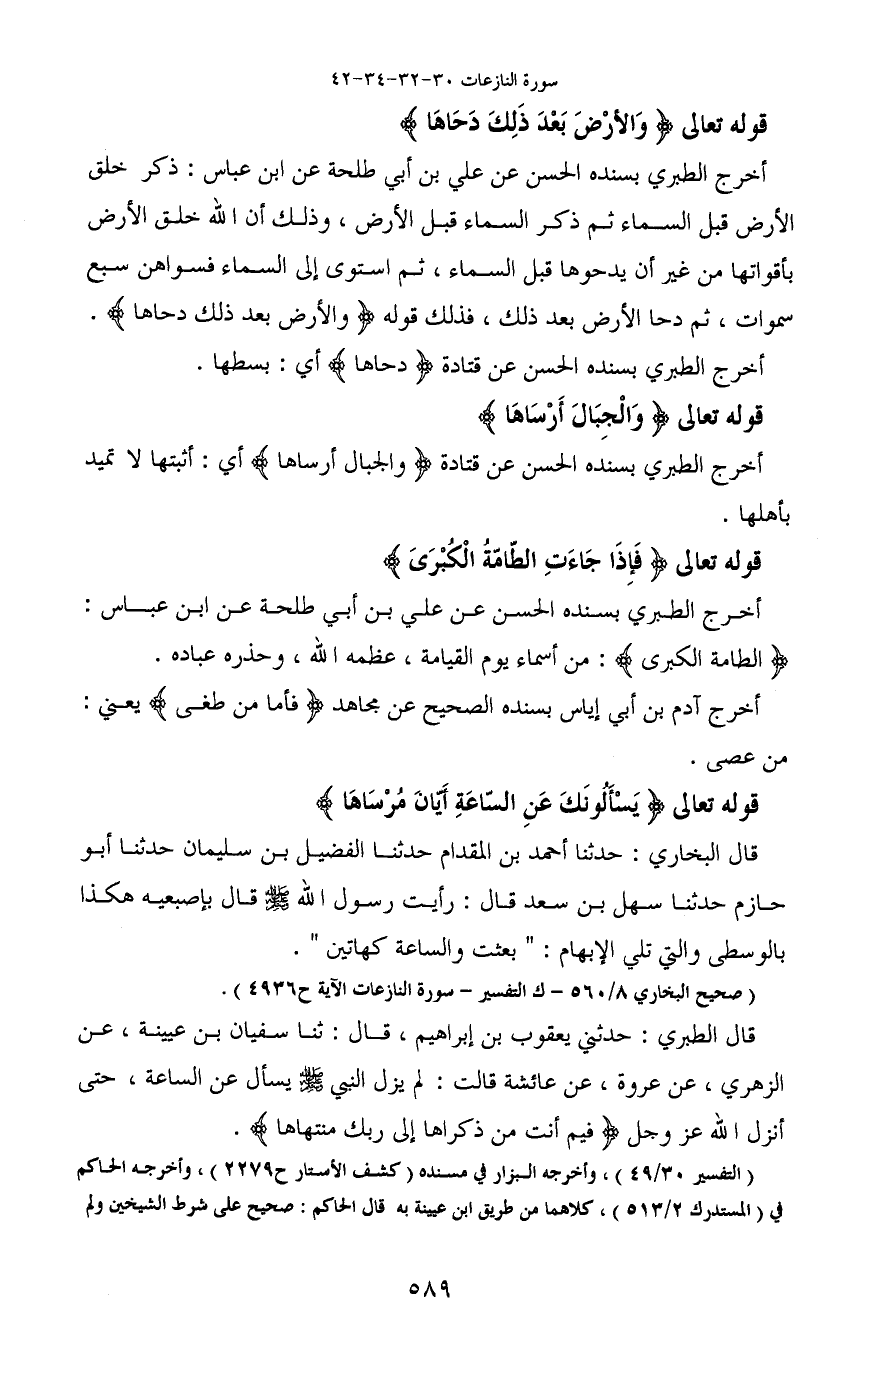 سورة النازعات ٣٠-٣٢-٣٤-٤٢
قوله تعالى ﴿ وَالأرْضَ بَعْدَ ذَلِكَ دَحَاهَا ﴾
أخرج الطبري بسنده الحسن عن علي بن أبي طلحة عن ابن عباس : ذكر خلق
الأرض قبل السماء ثم ذكر السماء قبل الأرض ، وذلك أن الله خلق الأرض
بأقواتها من غير أن يدحوها قبل السماء ، ثم استوى إلى السماء فسواهن سبع
سموات ، ثم دحا الأرض بعد ذلك ، فذلك قوله ﴿ والأرض بعد ذلك دحاها ﴾ .
أخرج الطبري بسنده الحسن عن قتادة ﴿ دحاها ﴾ أي : بسطها .
قوله تعالى ﴿ وَالْجِبَالَ أَرْسَاهَا ﴾
أخرج الطبري بسنده الحسن عن قتادة ﴿ والجبال أرساها ﴾ أي : أثبتها لا تميد
بأهلها .
قوله تعالى ﴿ فَإِذَا جَاءَتِ الطَّامَّةُ الْكُبْرَىَ ﴾
أخرج الطبري بسنده الحسن عن علي بن أبي طلحة عن ابن عباس :
﴿ الطامة الكبرى ﴾ : من أسماء يوم القيامة ، عظمه الله ، وحذره عباده .
أخرج آدم بن أبي إياس بسنده الصحيح عن مجاهد ﴿ فأما من طغى ﴾ يعني :
من عصى .
قوله تعالى ﴿ يَسْأَلُونَكَ عَنِ السَّاعَةِ أَيَّانَ مُرْسَاهَا ﴾
قال البخاري : حدثنا أحمد بن المقدام حدثنا الفضيل بن سليمان حدثنا أبو
حازم حدثنا سهل بن سعد قال : رأيت رسول الله ﷺ قال بإصبعيه هكذا
بالوسطى والتي تلي الإبهام : " بعثت والساعة كهاتين " .
( صحيح البخاري ٥٦٠/٨ - ك التفسير - سورة النازعات الآية ح٤٩٣٦ ) .
قال الطبري : حدثني يعقوب بن إبراهيم ، قال : ثنا سفيان بن عيينة ، عن
الزهري ، عن عروة ، عن عائشة قالت : لم يزل النبي ﷺ يسأل عن الساعة ، حتى
أنزل الله عز وجل ﴿ فيم أنت من ذكراها إلى ربك منتهاها ﴾ .
( التفسير ٤٩/٣٠ ) ، وأخرجه البزار في مسنده ( كشف الأستار ح٢٢٧٩ ) ، وأخرجه الحاكم
في ( المستدرك ٥١٣/٢ ) ، كلاهما من طريق ابن عيينة به قال الحاكم : صحيح على شرط الشيخين ولم
٥٨٩